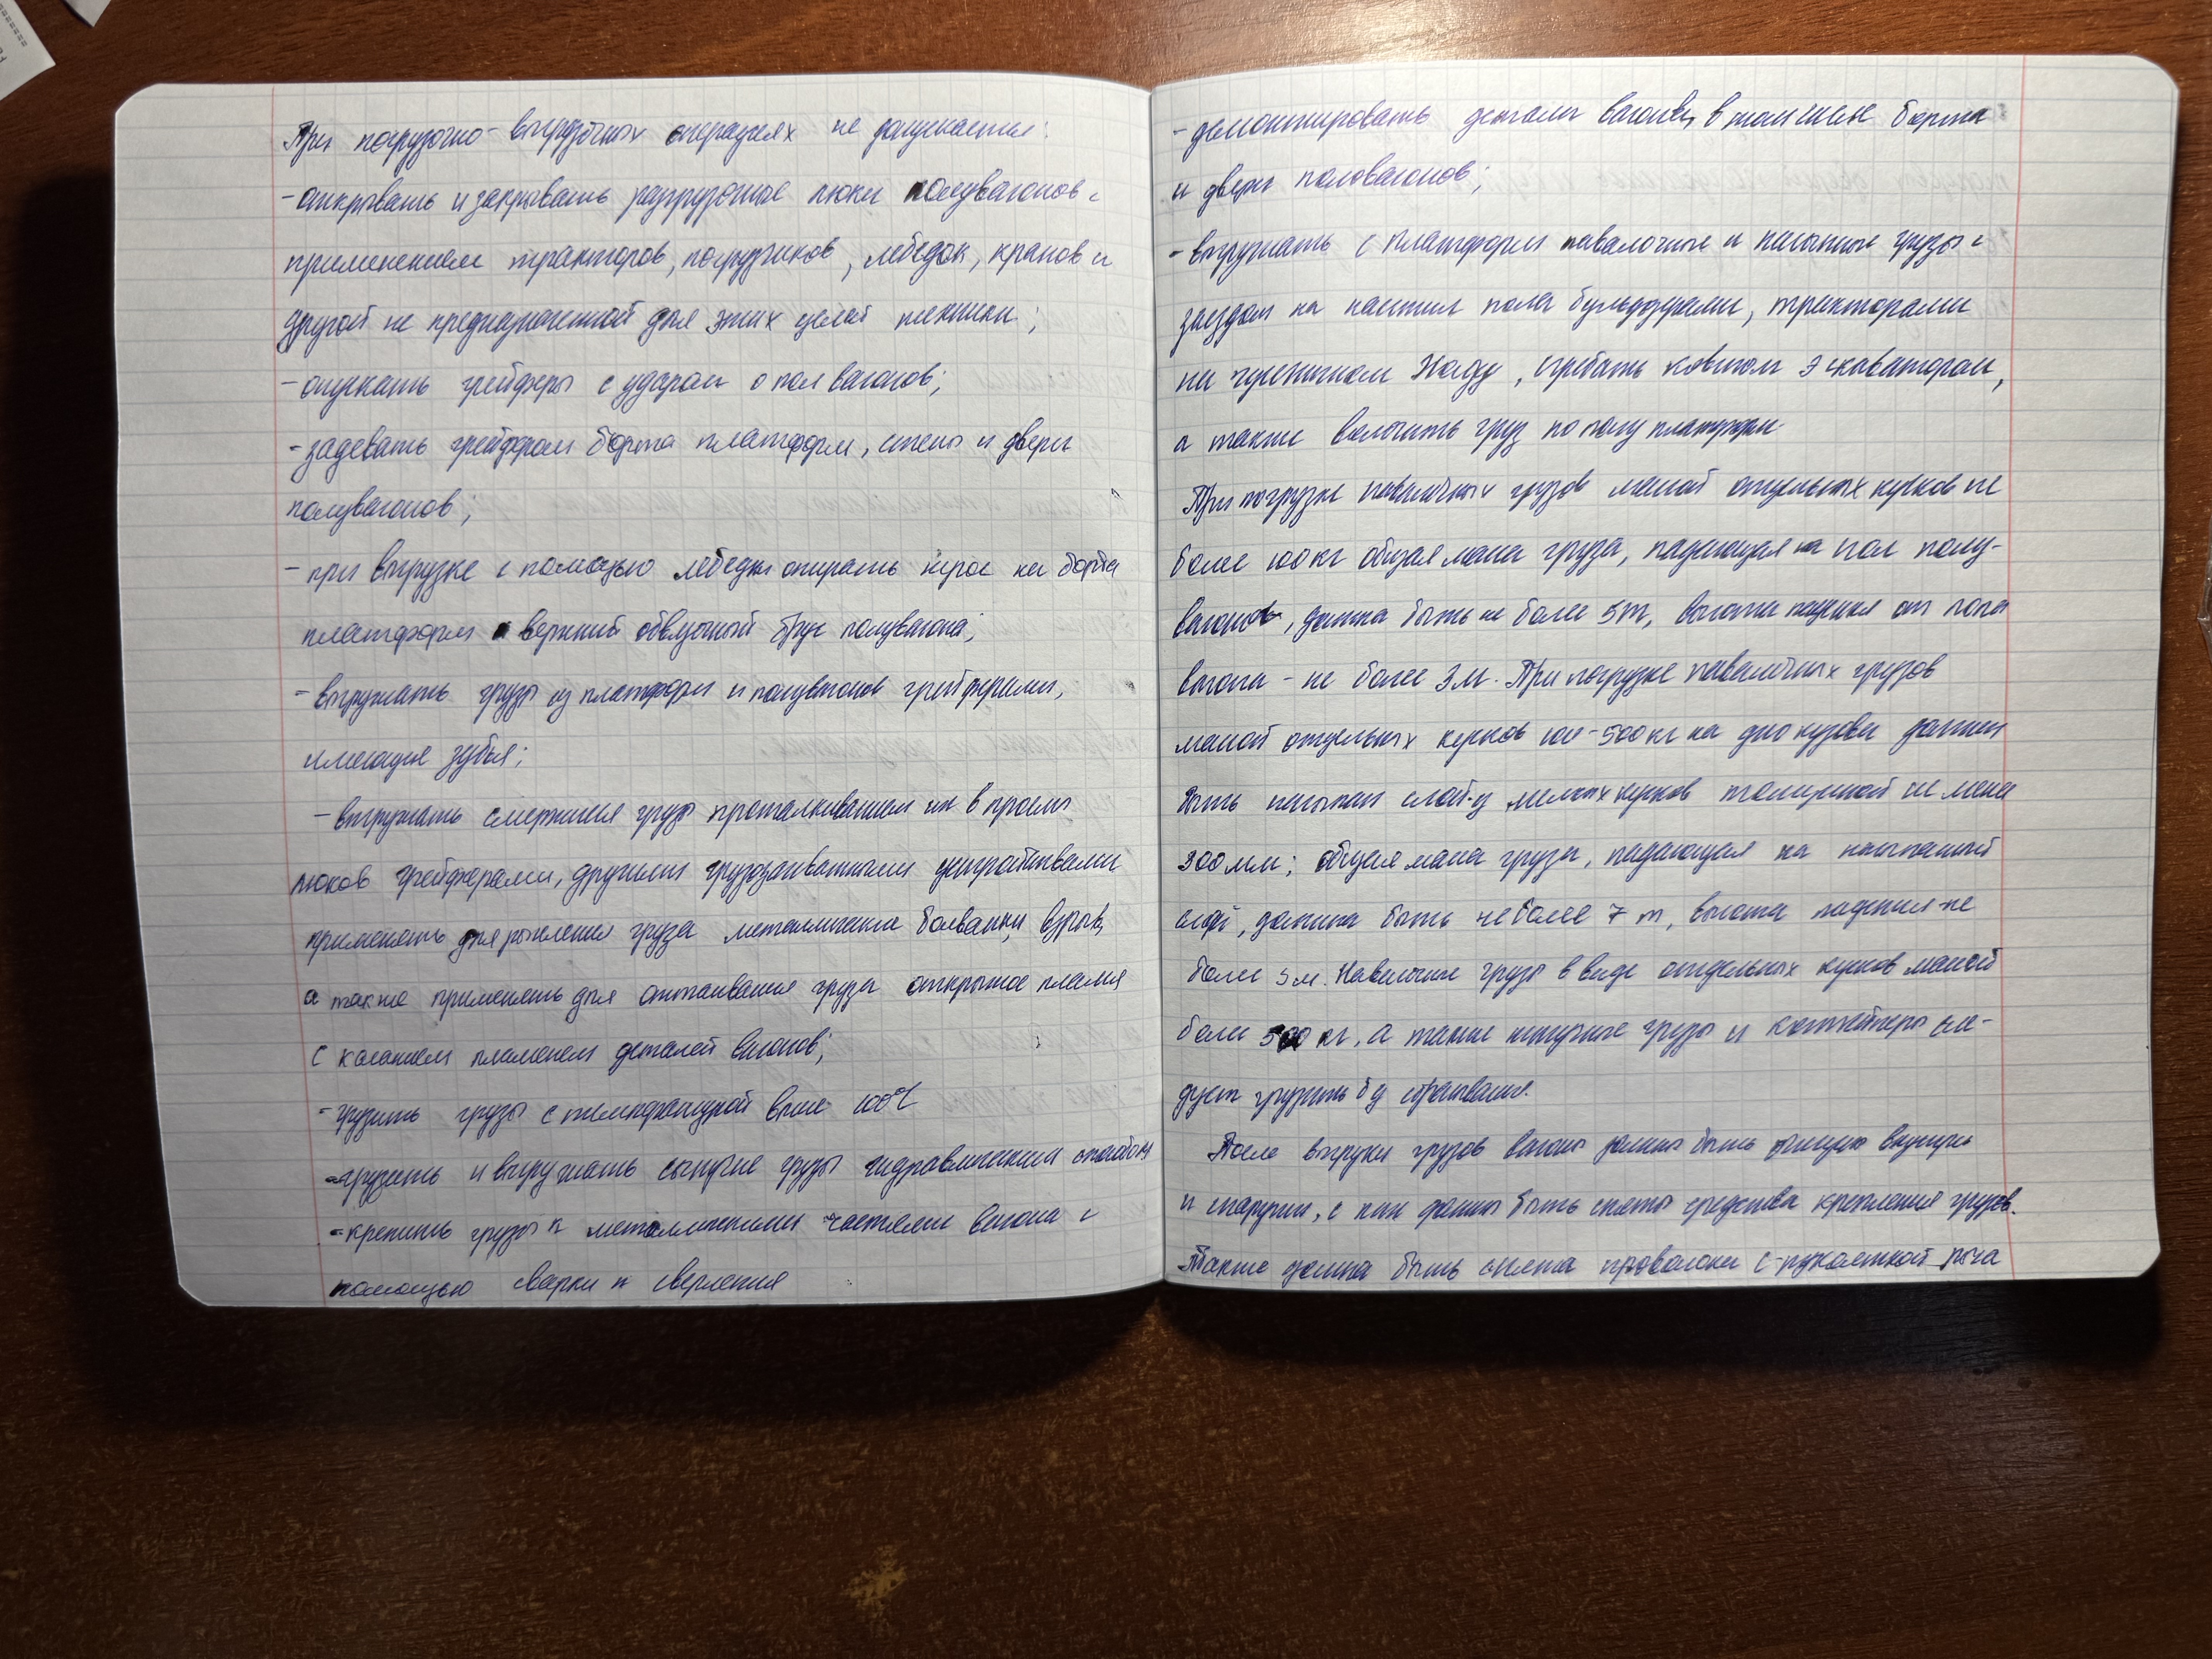 При погрузочно-выгрузочных операциях не допускается:
- открывать и закрывать разгрузочные люки полувагонов с
применением тракторов, погрузчиков, лебедок, кранов и
другой не предназначенной для этих целей техники;
- опускать грейферы с ударом о пол вагонов;
- задевать грейфером борта платформ, стены и двери
полувагонов;
- при выгрузке с помощью лебедки опирать на борта
платформ и верхний обвязочный брус полувагона;
- выгружать грузы из платформ и полувагонов грейферами,
имеющие зубья;
- выгружать смерзшиеся грузы проталкиванием их в проемы
люков грейферами, другими грузозахватными устройствами
применять для рыхления груза металлические болванки, взрыв,
а также применять для оттаивания груза открытое пламя
с касанием пламенем деталей вагонов;
- грузить грузы с температурой выше 100°С
- грузить и выгружать сыпучие грузы гидравлическим способом
- крепить грузы к металлическими частями вагона с
помощью сварки и сверления
- демонтировать детали вагонов, в том числе борта
и двери половагонов;
- выгружать с платформ навалочные и насыпные грузы с
заездом на настил пола бульдозерами, тракторами
на гусеничном ходу, сгребать ковшом экскаватором,
а также волочить груз по полу платформ
При погрузке навалочных грузов массой отдельных кусков не
более 100 кг общая масса груза, падающая на пол полу-
вагонов, должна быть не более 5т, высота падения от пола
вагона - не более 3м. При погрузке навалочных грузов
массой отдельных кусков 100-500кг на дно кузова должен
быть насыпан слой из мелких кусков толщиной не менее
300мм; общая масса груза, падающая на насыпанный
слой, должна быть не более 7 т, высота падения-не
более 3м. Навалочные грузы в виде отдельных кусков массой
более 500 кг, а также штучные грузы и контейнеры сле-
дует грузить без сбрасывания.
После выгрузки грузов вагоны должны быть очищены внутри
и снаружи, с них должны быть сняты средства крепления грузов.
Также должна быть снята проволока с рукояткой рыча